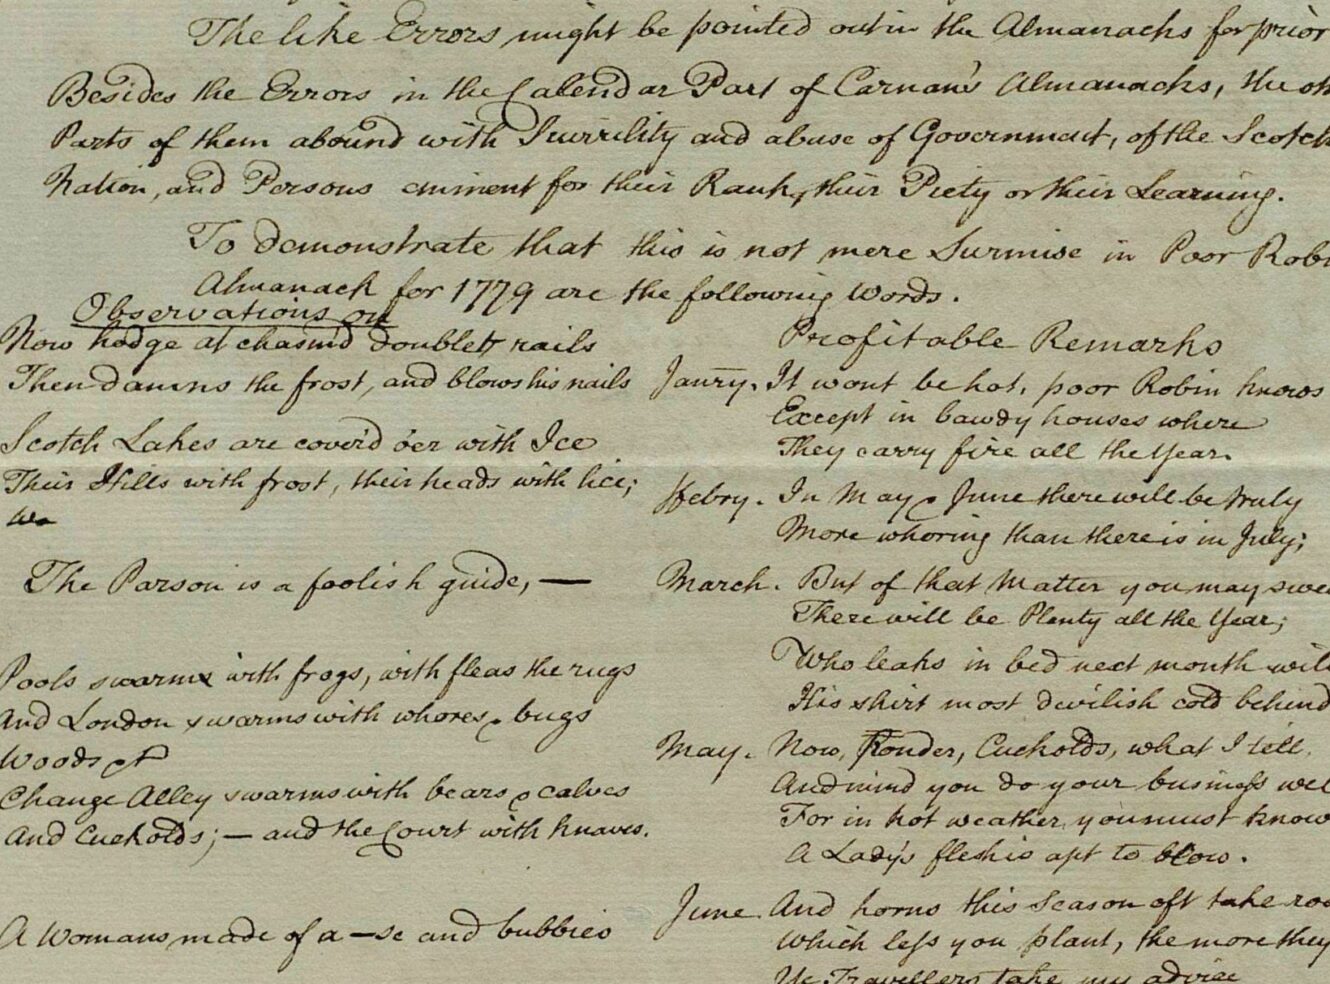 The like Errors might be pointed out in the Almanacks for prior
Besides the Errors in the Calendar Part of Carnan's Almanacks, the oth
Parts of them abound with Scurrility and abuse of Government, of the Scotch
Nation, and Persons eminent for their Rank, their Piety or their Learning.
To demonstrate that this is not mere Surmise in Poor Robi
Almanack for 1779 are the following Words.
Observations on
Now hodge at chasm'd doublett rails
Then damns the frost, and blows his nails
Scotch Lakes are cover'd o'er with Ice
Their Hills with frost, their heads with lice;
We
The Parson is a foolish guide, —
Pools swarm with frogs, with fleas the rugs
And London swarms with whores & bugs
Woods &c
Change Alley swarms with bears & calves
And Cuckolds; — and the Court with knaves.
A Womans made of a—se and bubbies
Profitable Remarks
Janry. It wont be hot, poor Robin knows
Except in bawdy houses where
They carry fire all the Year.
Febry. In May & June there will be truly
More whoring than there is in July;
March. But of that Matter you may swea
There will be Plenty all the Year;
Who leaks in bed next month will
His shirt most devilish cold behind
May. Now, Cuckolds, what I tell,
And mind you do your business wel
For in hot weather, you must know
A Lady's flesh is apt to blow.
June. And horns this Season oft take roo
Which less you plant, the more they
Ye Travellers take my advice